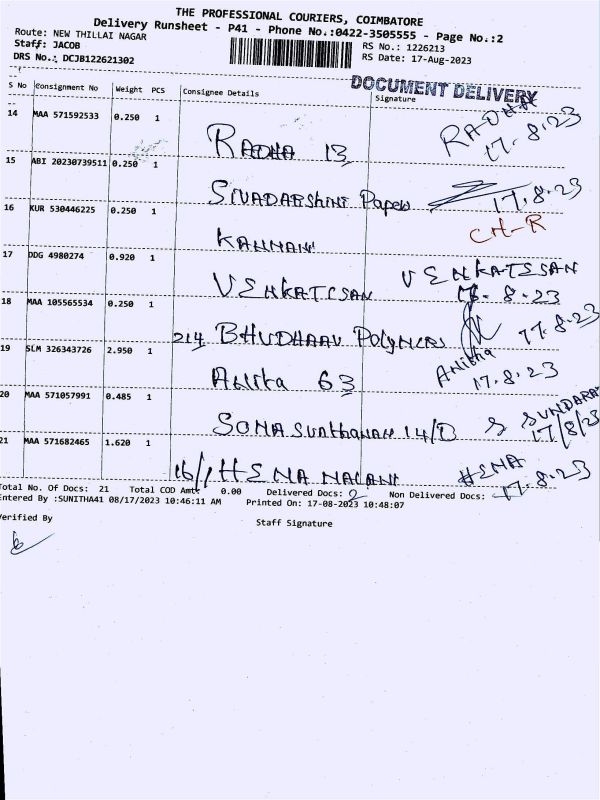 THE PROFESSIONAL COURIERS, COIMBATORE
Delivery Runsheet - P41 - Phone No.:0422-3505555 - Page No.:2
Route: NEW THILLAI NAGAR
Staff: JACOB
DRS No.: DCJB122621302
RS No.: 1226213
RS Date: 17-Aug-2023
DOCUMENT DELIVERY
S No Consignment No Weight PCS Consignee Details Signature
14 MAA 571592533 0.250 1 RADHA 13 RADHA 17.8.23
15 ABI 20230739511 0.250 1 SIVADARSHINI Papers 17.8.23
16 KUR 530446225 0.250 1 KANNAN CH-R
17 DDG 4980274 0.920 1 VENKATESAN VENKATESAN 8.23
18 MAA 105565534 0.250 1 214 Polymers 17.8.23
19 SLM 326343726 2.950 1 Anitha 63 Anitha 17.8.23
20 MAA 571057991 0.485 1 SONA 14/D 17/8/23
21 MAA 571682465 1.620 1 16/1 HENA HENA 17.8.23
Total No. Of Docs: 21 Total COD Amt: 0.00 Delivered Docs: Non Delivered Docs:
Entered By :SUNITHA41 08/17/2023 10:46:11 AM Printed On: 17-08-2023 10:48:07
Verified By Staff Signature